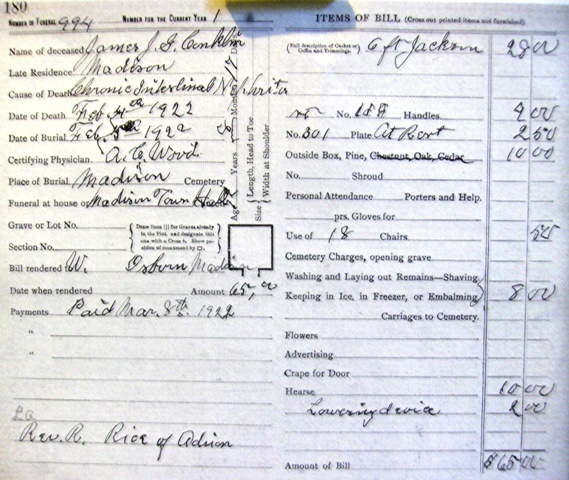 180
NUMBER OF FUNERAL 994 NUMBER FOR THE CURRENT YEAR 1
Name of deceased James J. G. Conklin
Late Residence Madison
Cause of Death Chronic Interstinal Nephritis
Date of Death Feb. 4th 1922
Date of Burial Feb. 1922
Certifying Physician A. C. Wood
Place of Burial Madison Cemetery
Funeral at house of Madison Town Hall
Grave or Lot No.
Section No.
Draw lines
Bill rendered to W. Osborn Madison
Date when rendered Amount 65,00
Payments Paid Mar. 8th. 1922
"
"
Rev. R. Rice of Adrian
Age Years Months Days
Size { Length, Head to Toe
Width at Shoulder
ITEMS OF BILL (Cross out printed items not furnished.)
(Full description of Casket or Coffin and Trimmings. 6 ft Jackson 28 00
No. Handles 4 00
No. 301 Plate At Rest 2 50
Outside Box, Pine, Chestnut, Oak, Cedar 10 00
No. Shroud
Personal Attendance Porters and Help.
prs. Gloves for
Use of 18 Chairs 50
Cemetery Charges, opening grave
Washing and Laying out Remains—Shaving
Keeping in Ice, in Freezer, or Embalming 8 00
Carriages to Cemetery.
Flowers
Advertising
Crape for Door
Hearse 10 00
Lowering device 2 00
Amount of Bill $65 00